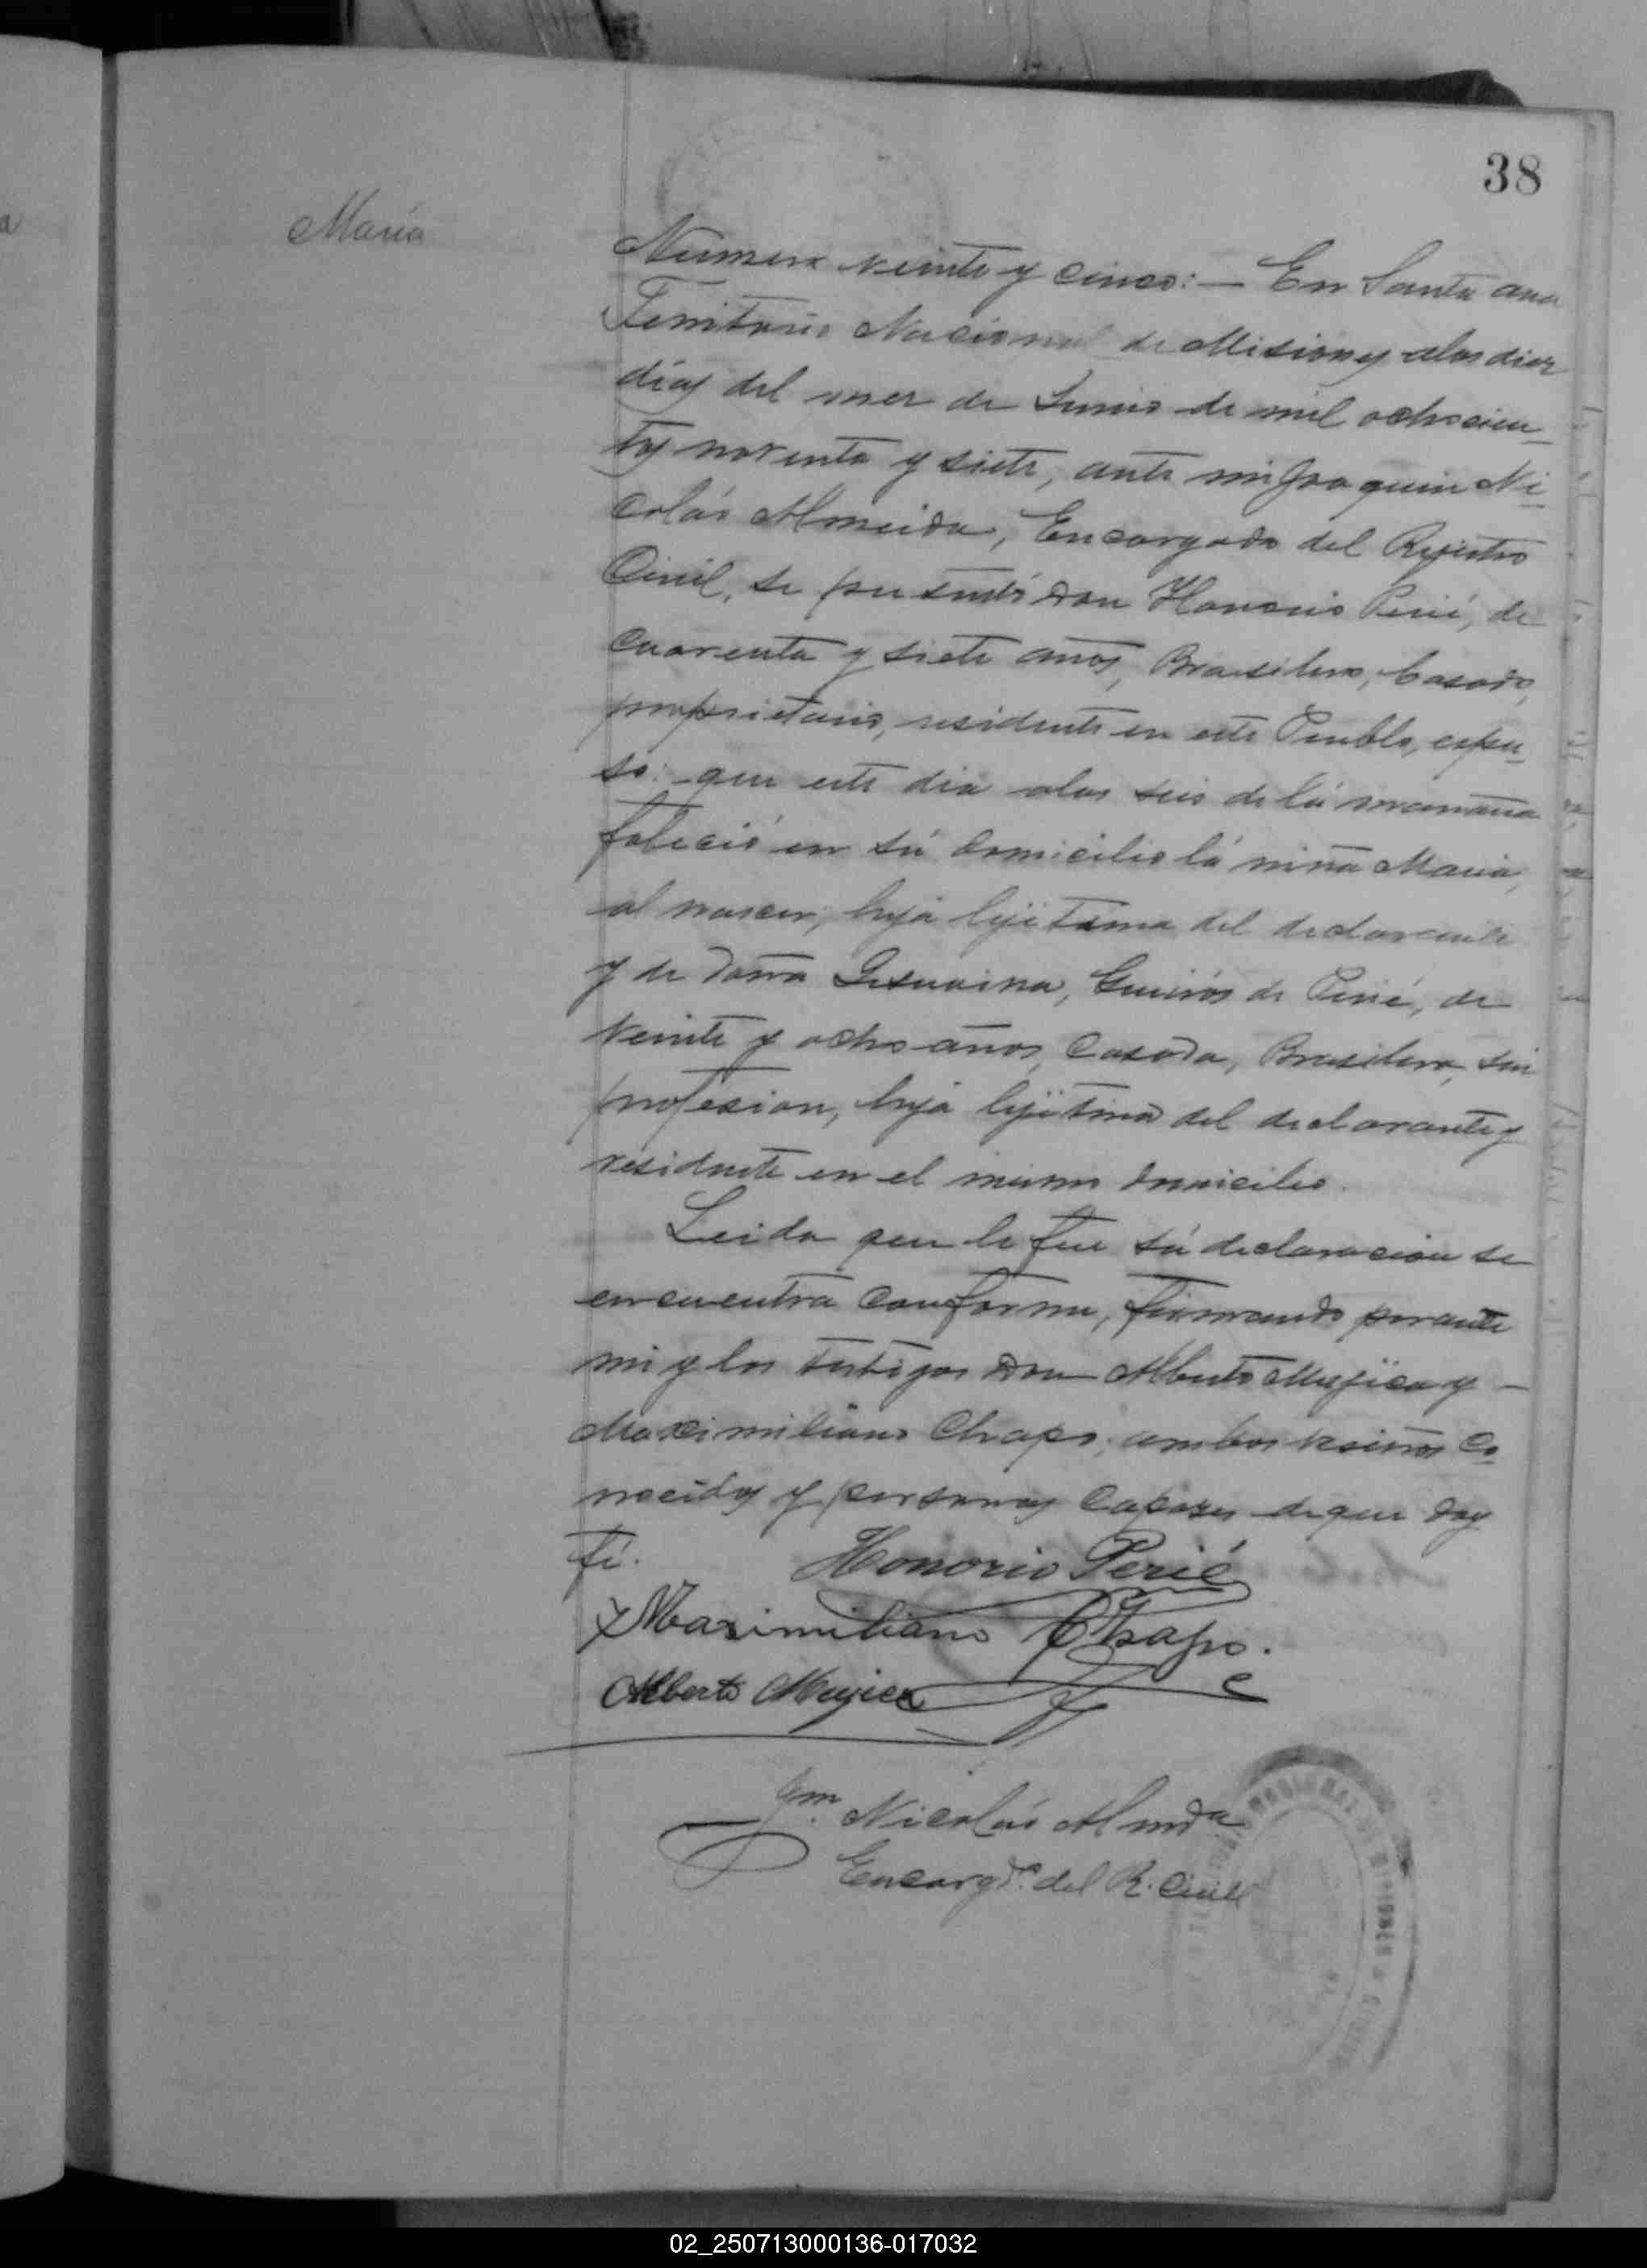 38
María
Número veinte y cinco:— En Santa ana
Territorio Nacional de Misiones alos diez
días del mes de Junio de mil ochocien-
tos noventa y siete, ante mi Joaquin Ni-
colás Almeida, Encargado del Rejistro
Civil, se presentó don Honorio Perié, de
cuarenta y siete años, Brasilero, Casado,
propietario, residente en este Pueblo, espu-
so: que este dia alas seis de lá mañana
faleció en sú domicilio lá niña Maria,
al nascer, hija lejitima del declarante
y de doña Jesuina, de Perié, de
veinte y ocho años, Casada, Brasilera, sin
profesion, hija lejitima del declarante y
residente en el mismo domicilio.
Leida que le fue sú declaracion se
encuentra conforme, firmando por ante
mi y los testigos don Alberto Mujica y —
Maximiliano Chapo, ambos vecinos Co-
nocidos y personas Capases de que doy
fé.
Honorio Perié
Maximiliano Chapo.
Alberto Mujica
Jm. Nicolás Almda
Encargdo. del R. Civil
02_250713000136-017032